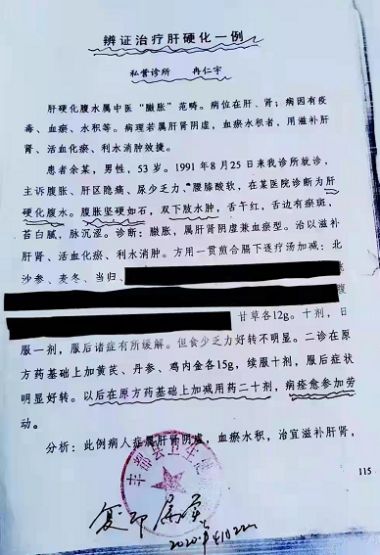 辨证治疗肝硬化一例
私营诊所 冉仁宇
肝硬化腹水属中医“臌胀”范畴。病位在肝、肾;病因有疫
毒、血瘀、水积等。病理若属肝肾阴虚,血瘀水积者,用滋补肝
肾、活血化瘀、利水消肿效捷。
患者余某,男性,53岁。1991年8月25日来我诊所就诊,
主诉腹胀、肝区隐痛、尿少乏力、腰膝酸软,在某医院诊断为肝
硬化腹水。腹胀坚硬如石,双下肢水肿,舌午红,舌边有瘀斑,
苔白腻,脉沉涩。诊断:臌胀,属肝肾阴虚兼血瘀型。治以滋补
肝肾、活血化瘀、利水消肿。方用一贯煎合膈下逐疗汤加减:北
沙参、麦冬、当归、
甘草各12g。十剂,日
服一剂,服后诸症有所缓解。但食少乏力好转不明显。二诊在原
方药基础上加黄芪、丹参、鸡内金各15g,续服十剂,服后症状
明显好转。以后在原方药基础上加减用药二十剂,病痊愈参加劳
动。
分析:此例病人症属肝肾阴虚,血瘀水积,治宜滋补肝肾,
115
丰都县卫生
复印属实